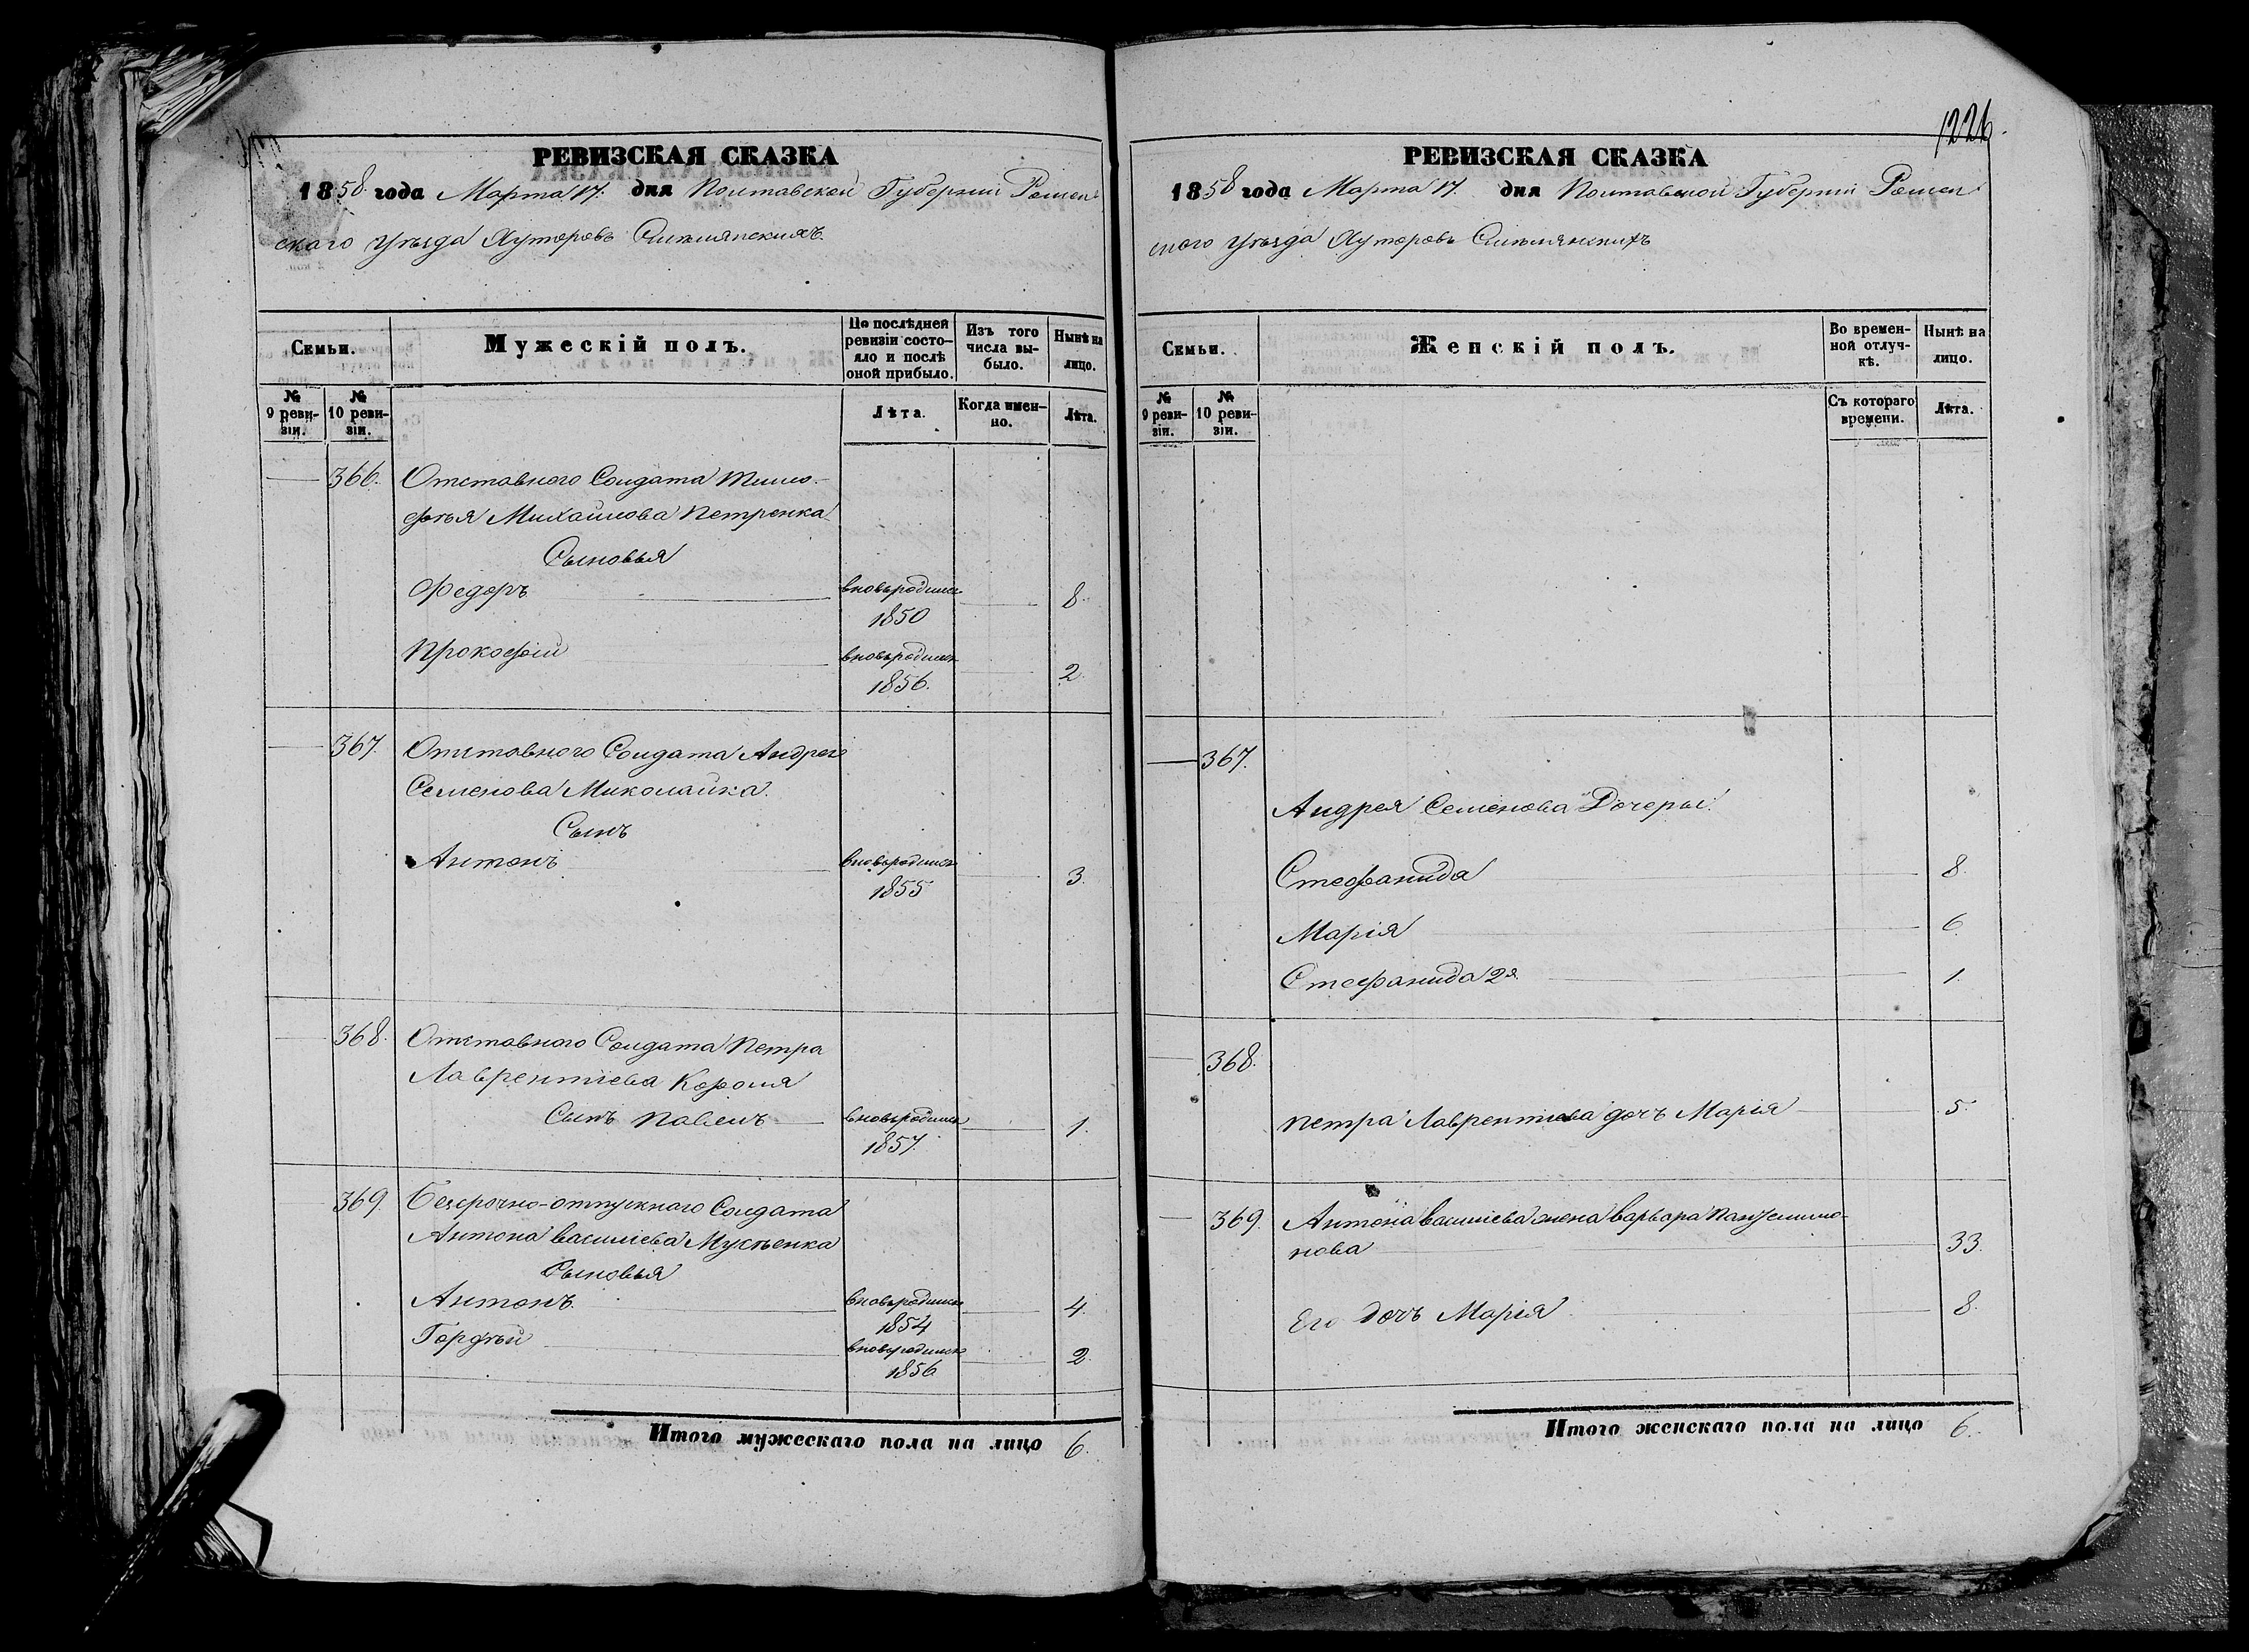 1226.
РЕВИЗСКАЯ СКАЗКА
1858 года Марта 17. дня Полтавской Губерніи Ромен
скаго Уѣзда Хуторовъ
Семьи.
Мужескій полъ.
По послѣдней ревизіи состо-
яло и послѣ
оной прибыло.
Изъ того
числа вы-
было.
Нынѣ на
лицо.
№
9 реви-
зіи.
№
10 реви-
зіи.
Лѣта.
Когда имен-
но.
Лѣта.
366. Отставного Солдата Тимо-
фѣя Михайлова Петренка
Сыновья
Федоръ вновьродился 8.
1850
Прокофій вновьродился 2.
1856.
367. Отставного Солдата Андрея
Семенова Миколайка.
Сынъ
Антонъ вновьродился 3.
1855
368. Отставного Солдата Петра
Лаврентіева Короля
Сынъ Павелъ вновьродился 1.
1857.
369. Безсрочно-отпускного Солдата
Антона Василіева
Сыновья
Антонъ вновьродился 4.
1854
Гордѣй вновьродился 2.
1856
Итого мужескаго пола на лицо 6.
РЕВИЗСКАЯ СКАЗКА
1858 года Марта 17. дня Полтавской Губерніи Ромен
скаго Уѣзда Хуторовъ
Семьи.
Женскій полъ.
Во времен-
ной отлуч-
кѣ.
Нынѣ на
лицо.
№
9 реви-
зіи.
№
10 реви-
зіи.
Съ котораго
времени.
Лѣта.
367.
Андрея Семенова Дочеры.
Стефанида 8.
Марія 6.
Стефанида 2я 1.
368.
Петра Лаврентіева дочъ Марія 5.
369. Антона Василіева жена Варвара Пантелимо-
нова 33.
Его дочъ Марія 8.
Итого женскаго пола на лицо 6.